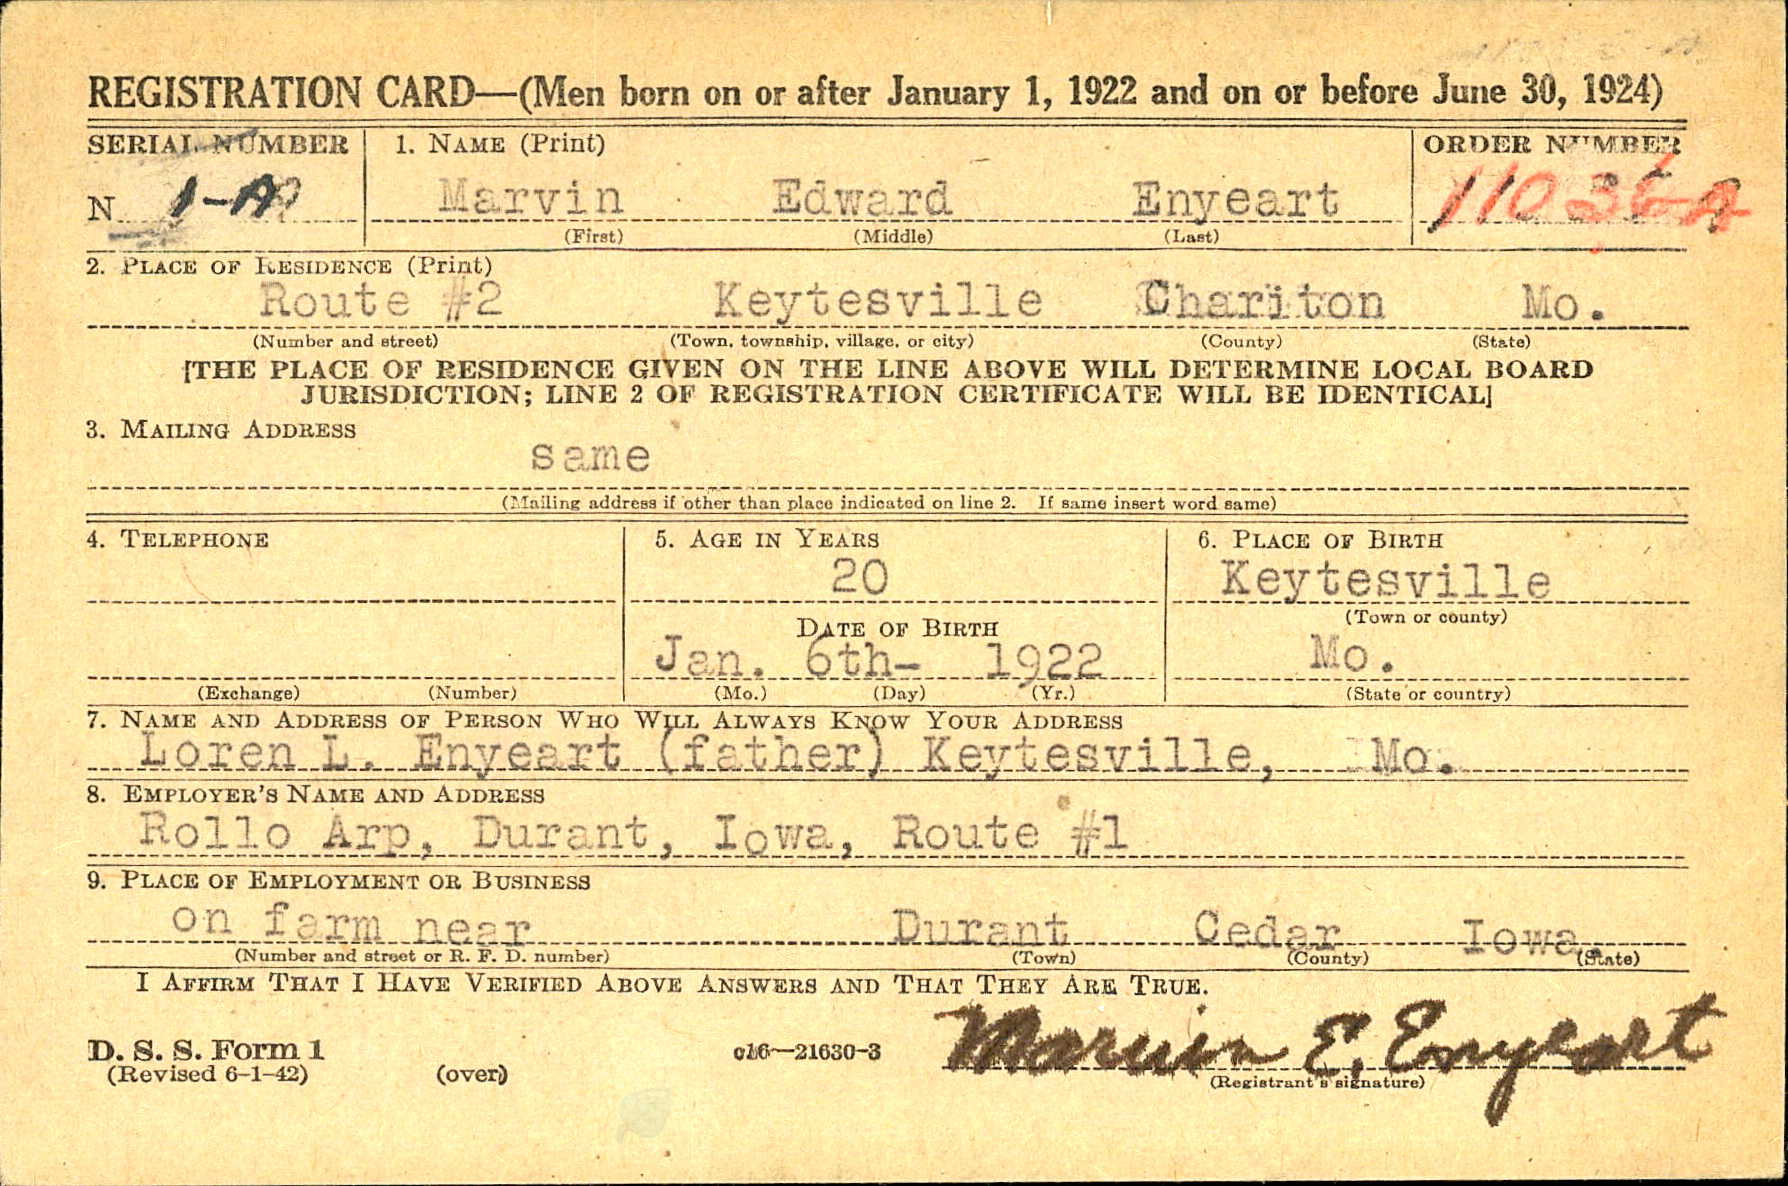 REGISTRATION CARD—(Men born on or after January 1, 1922 and on or before June 30, 1924)
SERIAL NUMBER 1. NAME (Print) ORDER NUMBER
N 1-A Marvin Edward Enyeart
(First) (Middle) (Last)
2. PLACE OF RESIDENCE (Print)
Route #2 Keytesville Chariton Mo.
(Number and street) (Town, township, village, or city) (County) (State)
[THE PLACE OF RESIDENCE GIVEN ON THE LINE ABOVE WILL DETERMINE LOCAL BOARD
JURISDICTION; LINE 2 OF REGISTRATION CERTIFICATE WILL BE IDENTICAL]
3. MAILING ADDRESS
same
(Mailing address if other than place indicated on line 2. If same insert word same)
4. TELEPHONE 5. AGE IN YEARS 6. PLACE OF BIRTH
20 Keytesville
(Town or county)
DATE OF BIRTH
Jan. 6th- 1922 Mo.
(Exchange) (Number) (Mo.) (Day) (Yr.) (State or country)
7. NAME AND ADDRESS OF PERSON WHO WILL ALWAYS KNOW YOUR ADDRESS
Loren L. Enyeart (father) Keytesville, Mo.
8. EMPLOYER'S NAME AND ADDRESS
Rollo Arp, Durant, Iowa, Route #1
9. PLACE OF EMPLOYMENT OR BUSINESS
on farm near Durant Cedar Iowa.
(Number and street or R. F. D. number) (Town) (County) (State)
I AFFIRM THAT I HAVE VERIFIED ABOVE ANSWERS AND THAT THEY ARE TRUE.
D. S. S. Form 1 c16—21630-3 Marvin E. Enyeart
(Revised 6-1-42) (over) (Registrant's signature)